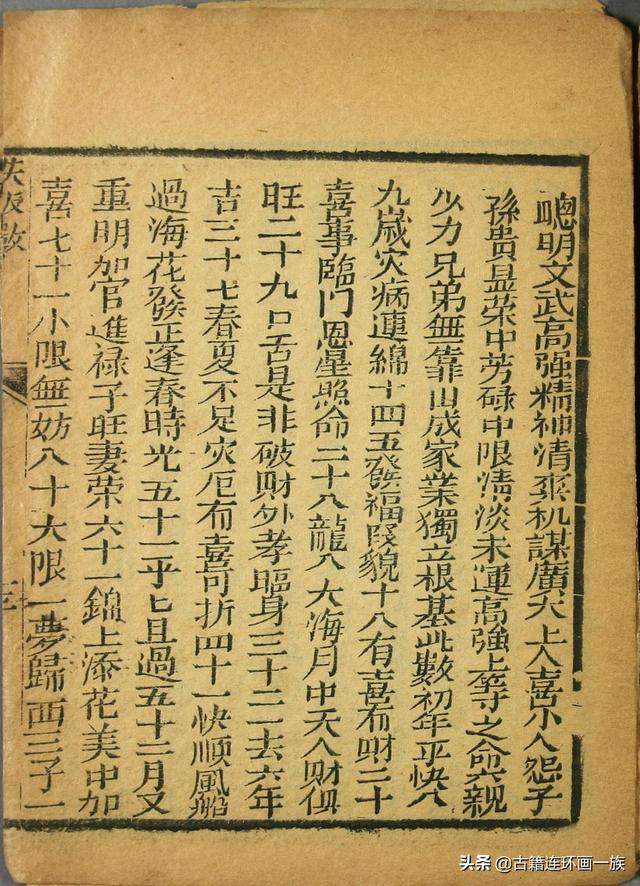 聰明文武高强精神清爽机謀廣大上人喜小人怨子
孫貴显荣中劳碌中限清淡未運高強上荖寸之命六親
少力兄弟無靠山成家業獨立根基此數初年平快八
九歲灾病連綿十四五發福叚貌十八有喜有財二十
喜事臨門恩星照命二十八龍入大海月中天人財俱
旺二十九口舌是非破財外孝臨身三十二一去六年
吉三十七春夏不足灾厄有喜可折四十一快順風船
過海花發正逢春時光五十一平七且過五十二月又
重明加官進禄子旺妻荣六十一錦上添花美中加
喜七十一小限無妨八十大限一夢歸西三子一
头条 @古籍连环画一族